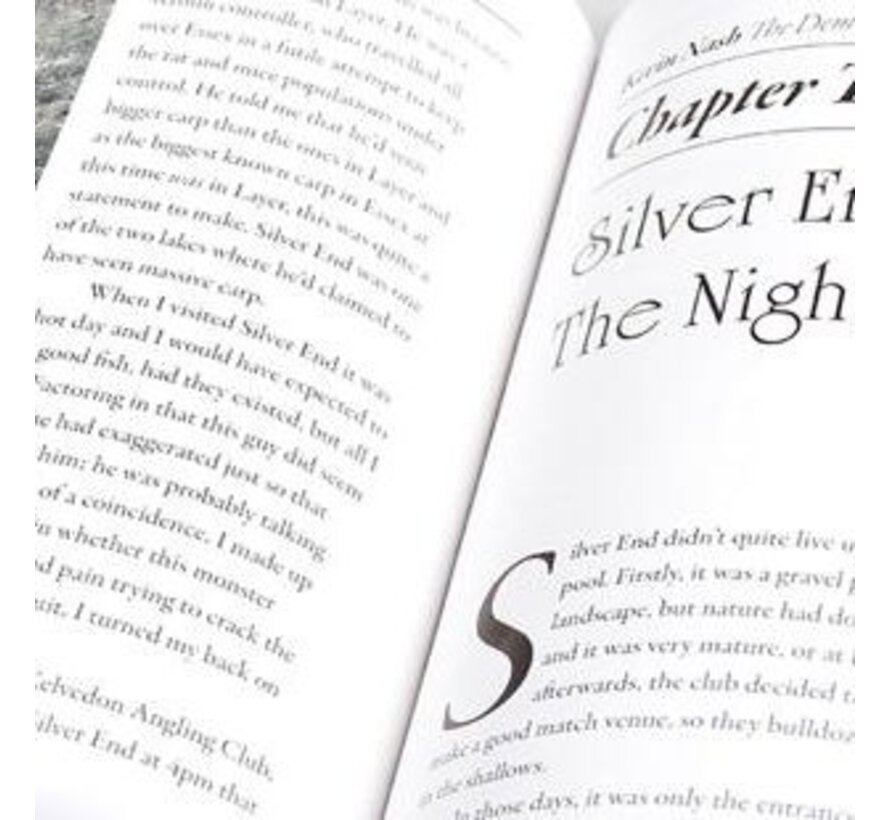 in Layer. He was a
vermin controller, who travelled all
over Essex in a futile attempt to keep
the rat and mice populations under
control. He told me that he'd seen
bigger carp than the ones in Layer and
as the biggest known carp in Essex at
this time was in Layer, this was quite a
statement to make. Silver End was one
of the two lakes where he'd claimed to
have seen massive carp.
When I visited Silver End it was
hot day and I would have expected to
good fish, had they existed, but all I
Factoring in that this guy did seem
had exaggerated just so that
him; he was probably talking
of a coincidence. I made up
whether this monster
pain trying to crack the
I turned my back on
Kelvedon Angling Club,
Silver End at 4pm that
Kevin Nash The Dem
Chapter T
Silver En
The Nigh
Silver End didn't quite live u
pool. Firstly, it was a gravel p
landscape, but nature had do
and it was very mature, or at l
afterwards, the club decided t
make a good match venue, so they bulldoz
in the shallows.
In those days, it was only the entranc